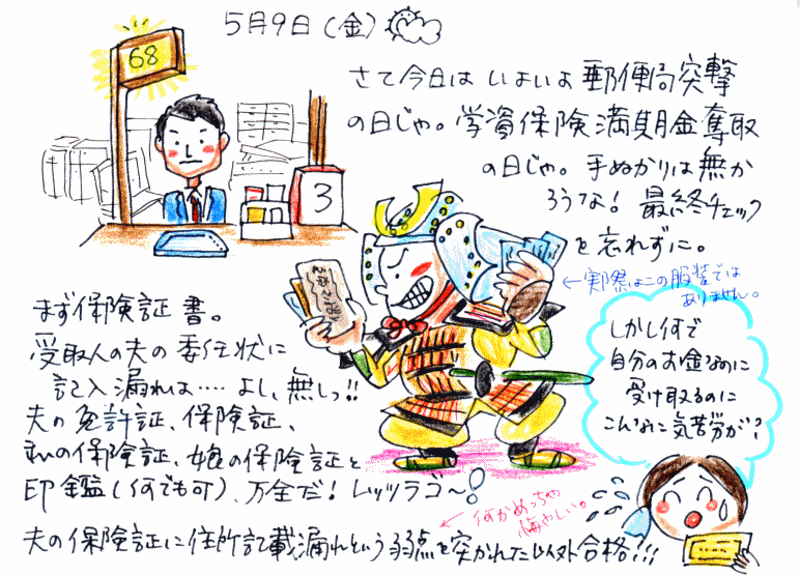 5月9日(金)
68
3
さて今日はいよいよ郵便局突撃
の日じゃ。学資保険満期金奪取
の日じゃ。手ぬかりは無か
ろうな! 最終チェック
を忘れずに。
←実際はこの服装では
ありません。
まず保険証書。
受取人の夫の委任状に
記入漏れは……よし、無しっ!!
夫の免許証、保険証、
私の保険証、娘の保険証と
印鑑(何でも可)、万全だ!レッツラゴ〜!
しかし何で
自分のお金なのに
受け取るのに
こんなに気苦労が?
←何かめっちゃ
悔やしい。
夫の保険証に住所記載漏れという弱点を突かれた以外合格!!!